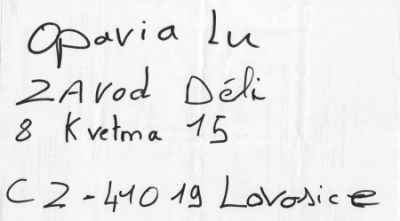 Opavia Lu
ZAvod Déli
8 Kvetma 15
CZ-41019 Lovosice